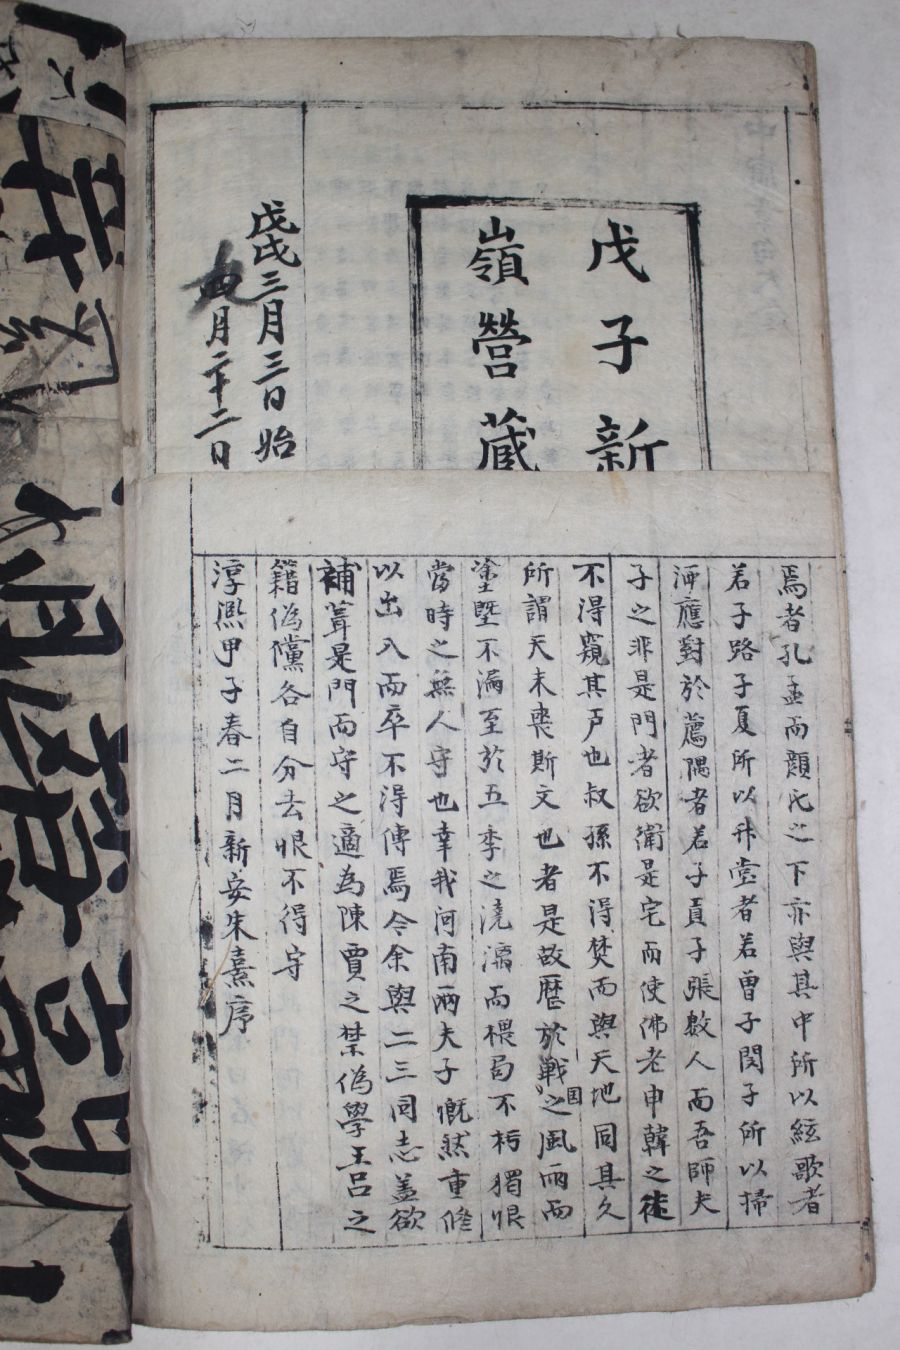 戊子新
嶺營蔵
戊戌三月三日始
四月二十二日
焉者孔孟而顔氏之下亦與其中所以絃歌者
若子路子夏所以升堂者若曾子閔子所以掃
洒應對於薦隅者若子貢子張數人而吾師夫
子之非是門者欲衛是宅而使佛老申韓之徒
不得窺其戶也叔孫不得焚而與天地同其久
所謂天未喪斯文也者是故歷於戰国之風雨而
塗墍不漏至於五季之澆漓而椳扃不朽獨恨
當時之無人守也幸我河南兩夫子慨然重修
以出入而卒不得傳焉今余與二三同志盖欲
補葺是門而守之適為陳賈之禁偽學王呂之
籍偽黨各自分去恨不得守
淳熙甲子春二月新安朱熹序